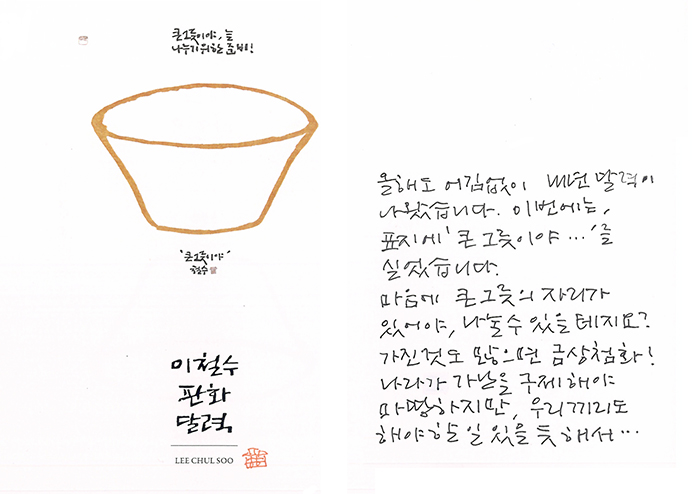 큰그릇이야, 늘
나누기 위한 준비!
'큰그릇이야'
철수
이철수
판화
달력
LEE CHUL SOO
올해도 어김없이 새년 달력이
나왔습니다. 이번에는,
표지에 '큰 그릇이야 …'를
실었습니다.
마음에 큰 그릇의 자리가
있어야, 나눌 수 있을 테지요?
가진것도 많으면 금상첨화!
나라가 가난을 구제해야
마땅하지만, 우리끼리도
해야할 일 있을 듯 해서…